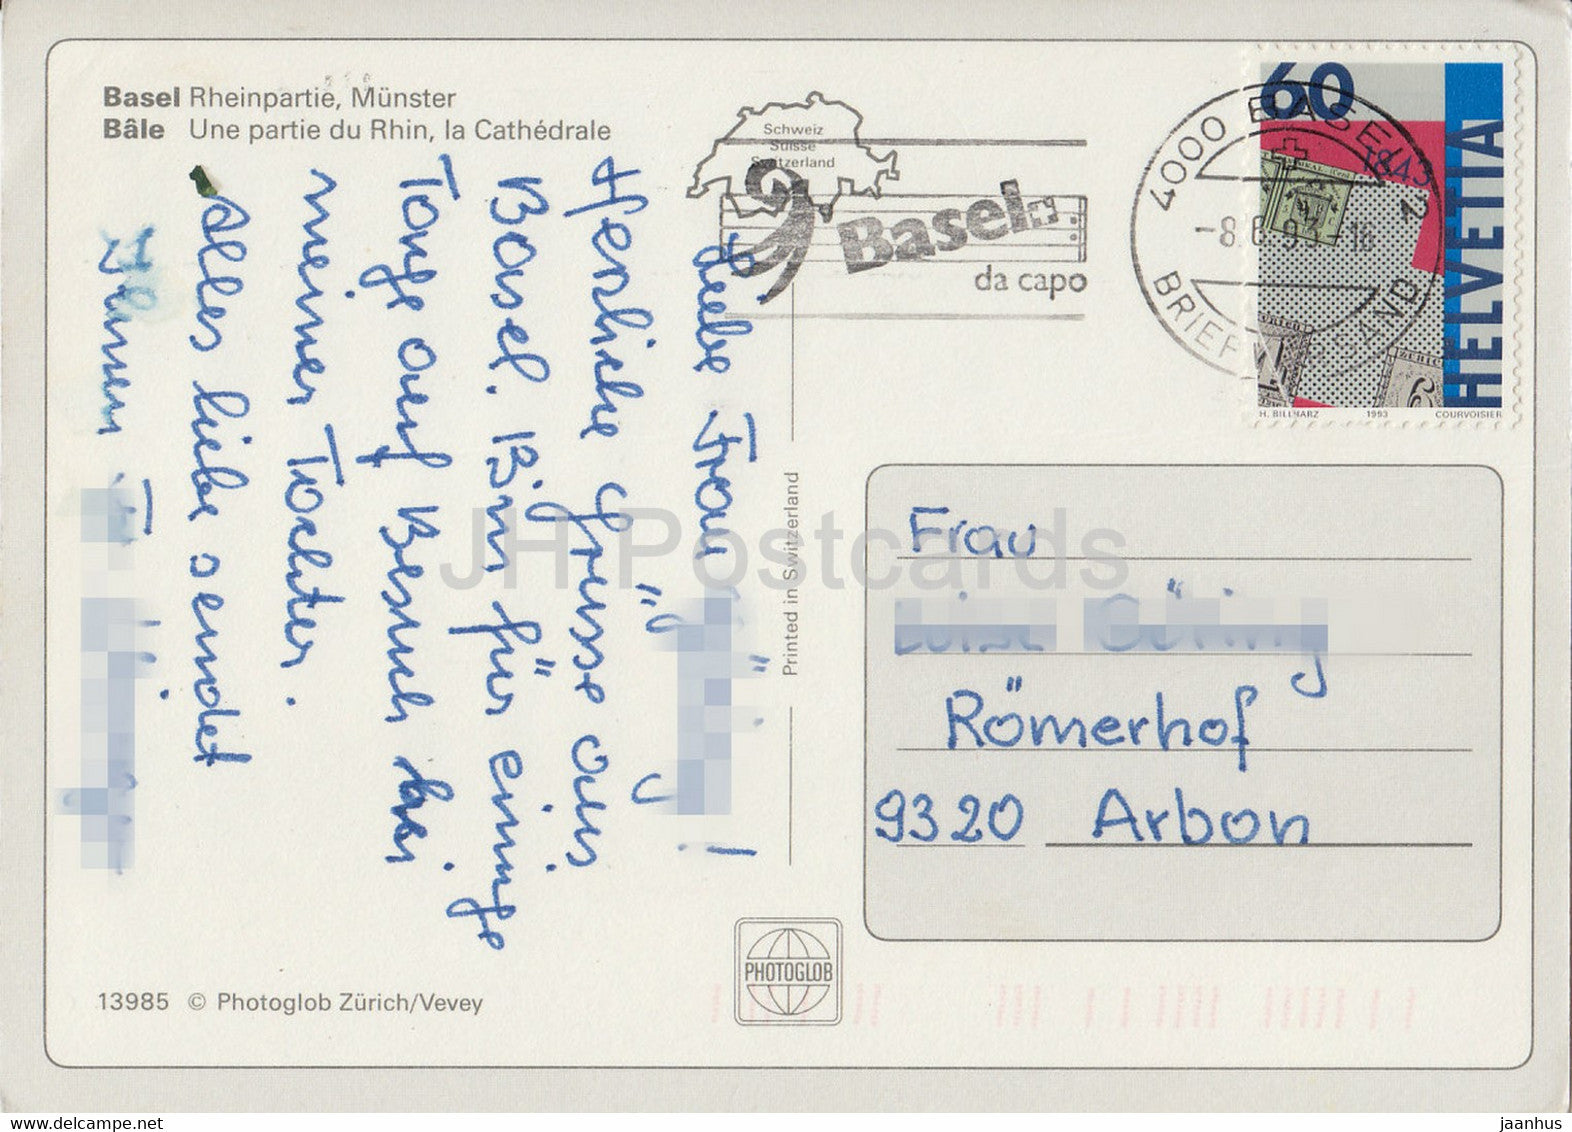 Basel Rheinpartie, Münster
Bâle Une partie du Rhin, la Cathédrale
Schweiz
Suisse
Switzerland
Basel
da capo
4000 BASEL 2
-8.6.93-16
BRIEFVERSAND
60
1843
HELVETIA
H. BILLHARZ 1993 COURVOISIER
Liebe Frau
Herzliche Grüsse aus
Basel. Bin für einige
Tage auf Besuch bei
meiner Tochter.
Alles liebe sendet
Ihnen
Printed in Switzerland
Frau
Römerhof
9320 Arbon
PHOTOGLOB
13985 © Photoglob Zürich/Vevey
JH Postcards
delcampe.net
jaanhus